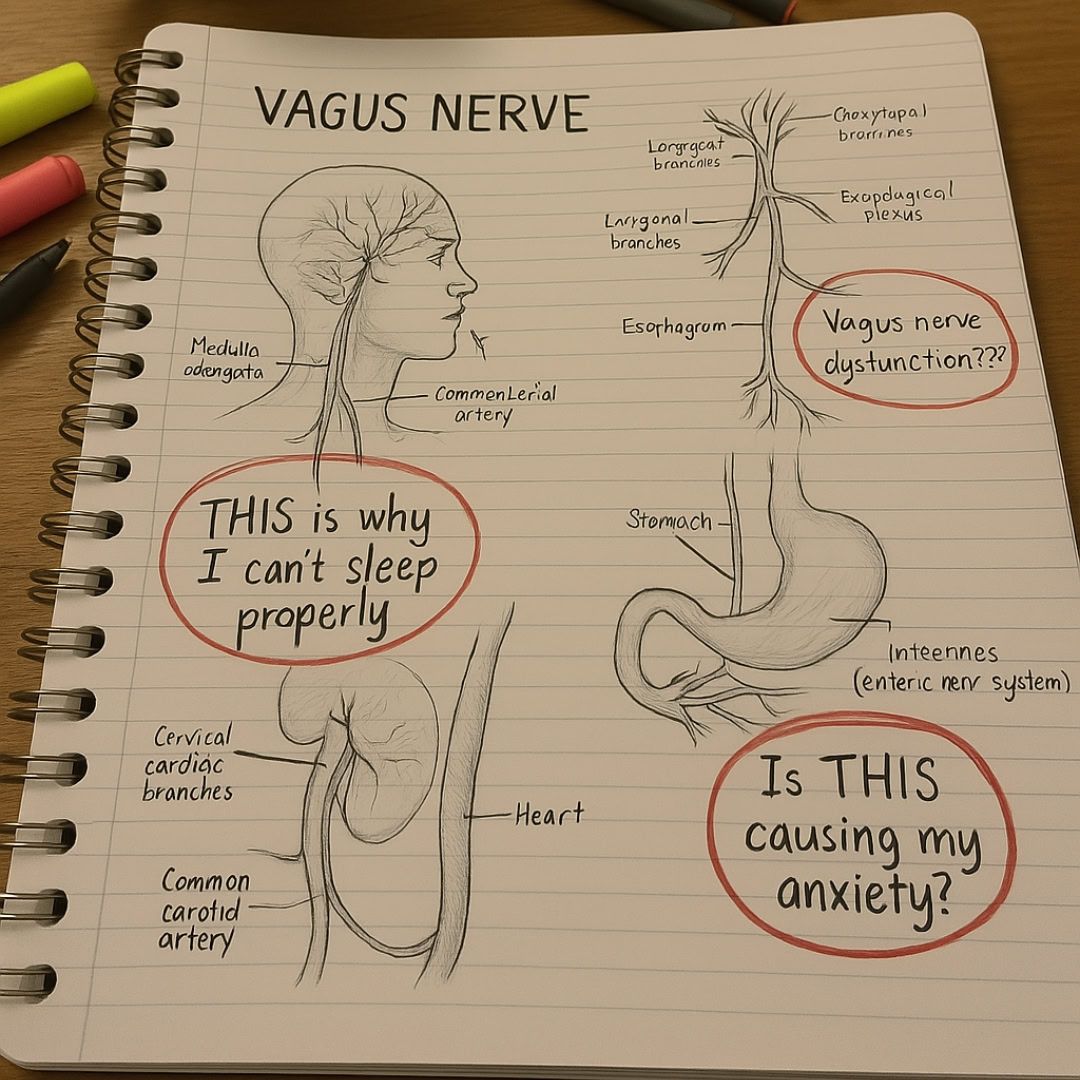 VAGUS NERVE
Medulla
odengata
CommenLerial
artery
THIS is why
I can't sleep
properly
Cervical
cardiac
branches
Heart
Common
carotid
artery
Choxytapal
Lorgrgcat
Exapdagical
plexus
Lnrygonal
branches
Esophagrom
Vagus nerve
dystunction???
Stomach
Inteennes
(enteric nerv system)
Is THIS
causing my
anxiety?